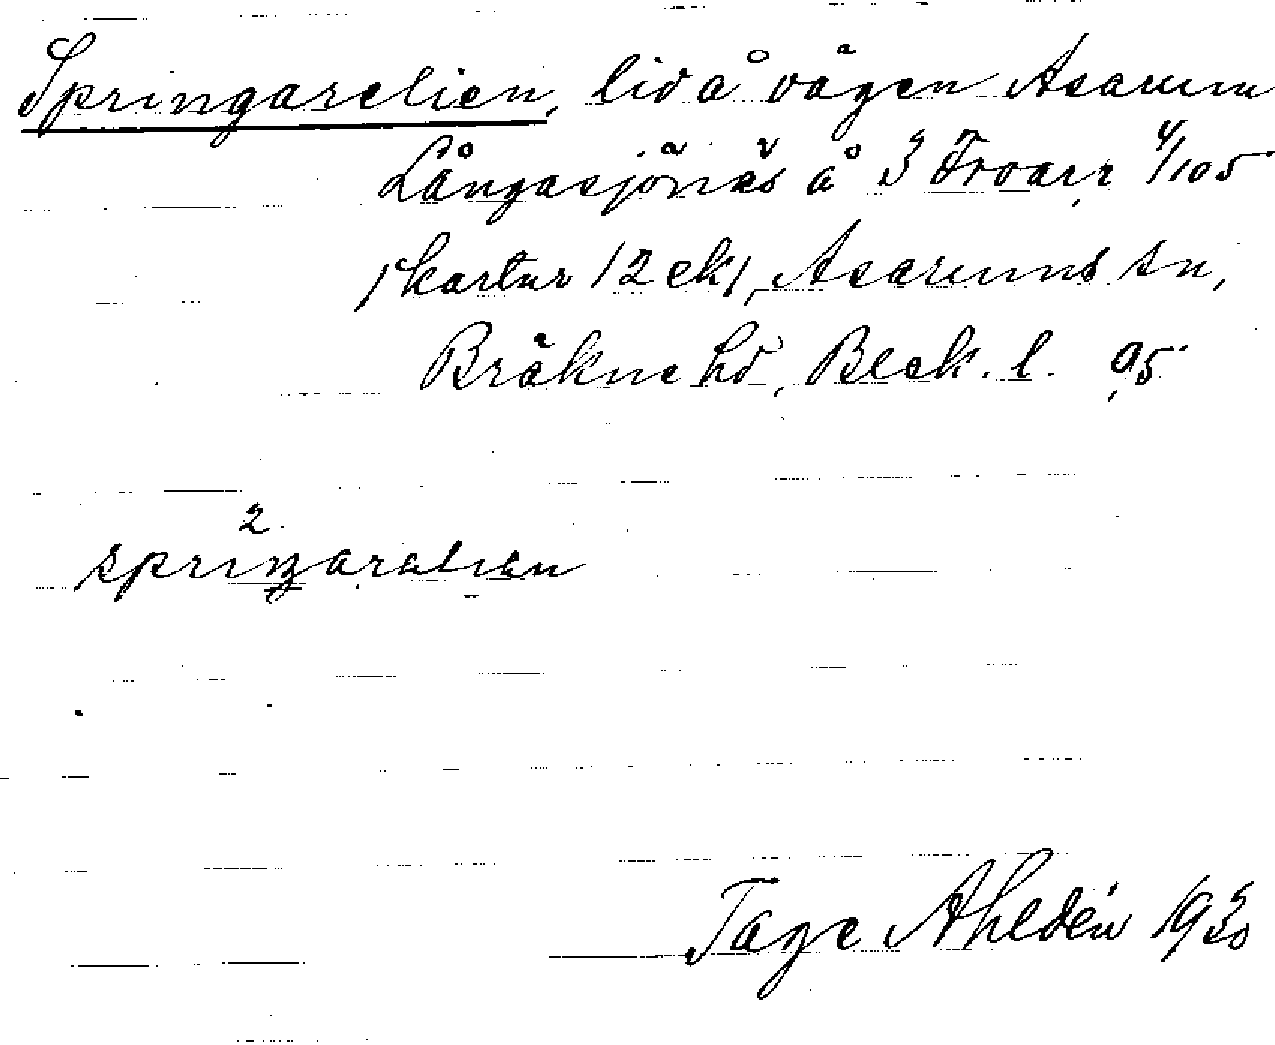 Springarelien, lid å vägen Asarum
Långasjönäs å 3 Froarp 4/105
/kartur 12 ek/, Asarums sn,
Bräkne hd, Blek. l. 95
2
springarelien
Tage Ahldén 1930